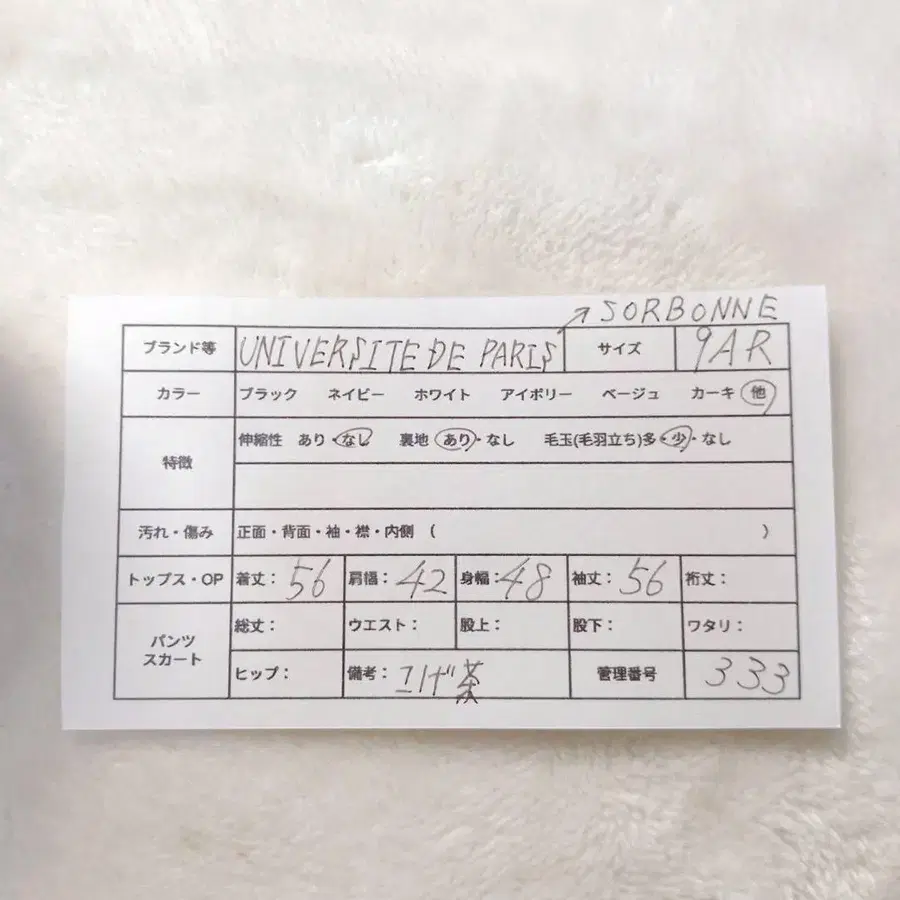 → SORBONNE
ブランド等 UNIVERSITE DE PARIS サイズ 9AR
カラー ブラック ネイビー ホワイト アイボリー ベージュ カーキ 他
特徴 伸縮性 あり・なし 裏地 あり・なし 毛玉(毛羽立ち)多・少・なし
汚れ・傷み 正面・背面・袖・襟・内側 ( )
トップス・OP 着丈: 56 肩幅: 42 身幅: 48 袖丈: 56 裄丈:
パンツ スカート 総丈: ウエスト: 股上: 股下: ワタリ:
ヒップ: 備考: こげ茶 管理番号 333